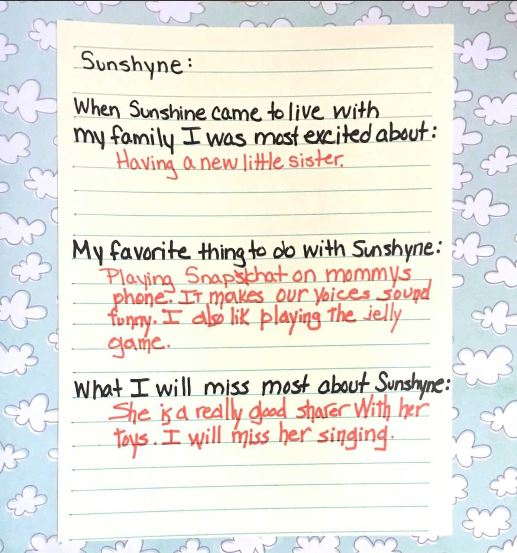 Sunshyne:
When Sunshine came to live with
my family I was most excited about:
Having a new little sister.
My favorite thing to do with Sunshyne:
Playing Snapschat on mommys
phone. It makes our voices sound
funny. I also lik playing the jelly
game.
What I will miss most about Sunshyne:
She is a really good sharer With her
toys. I will miss her singing.